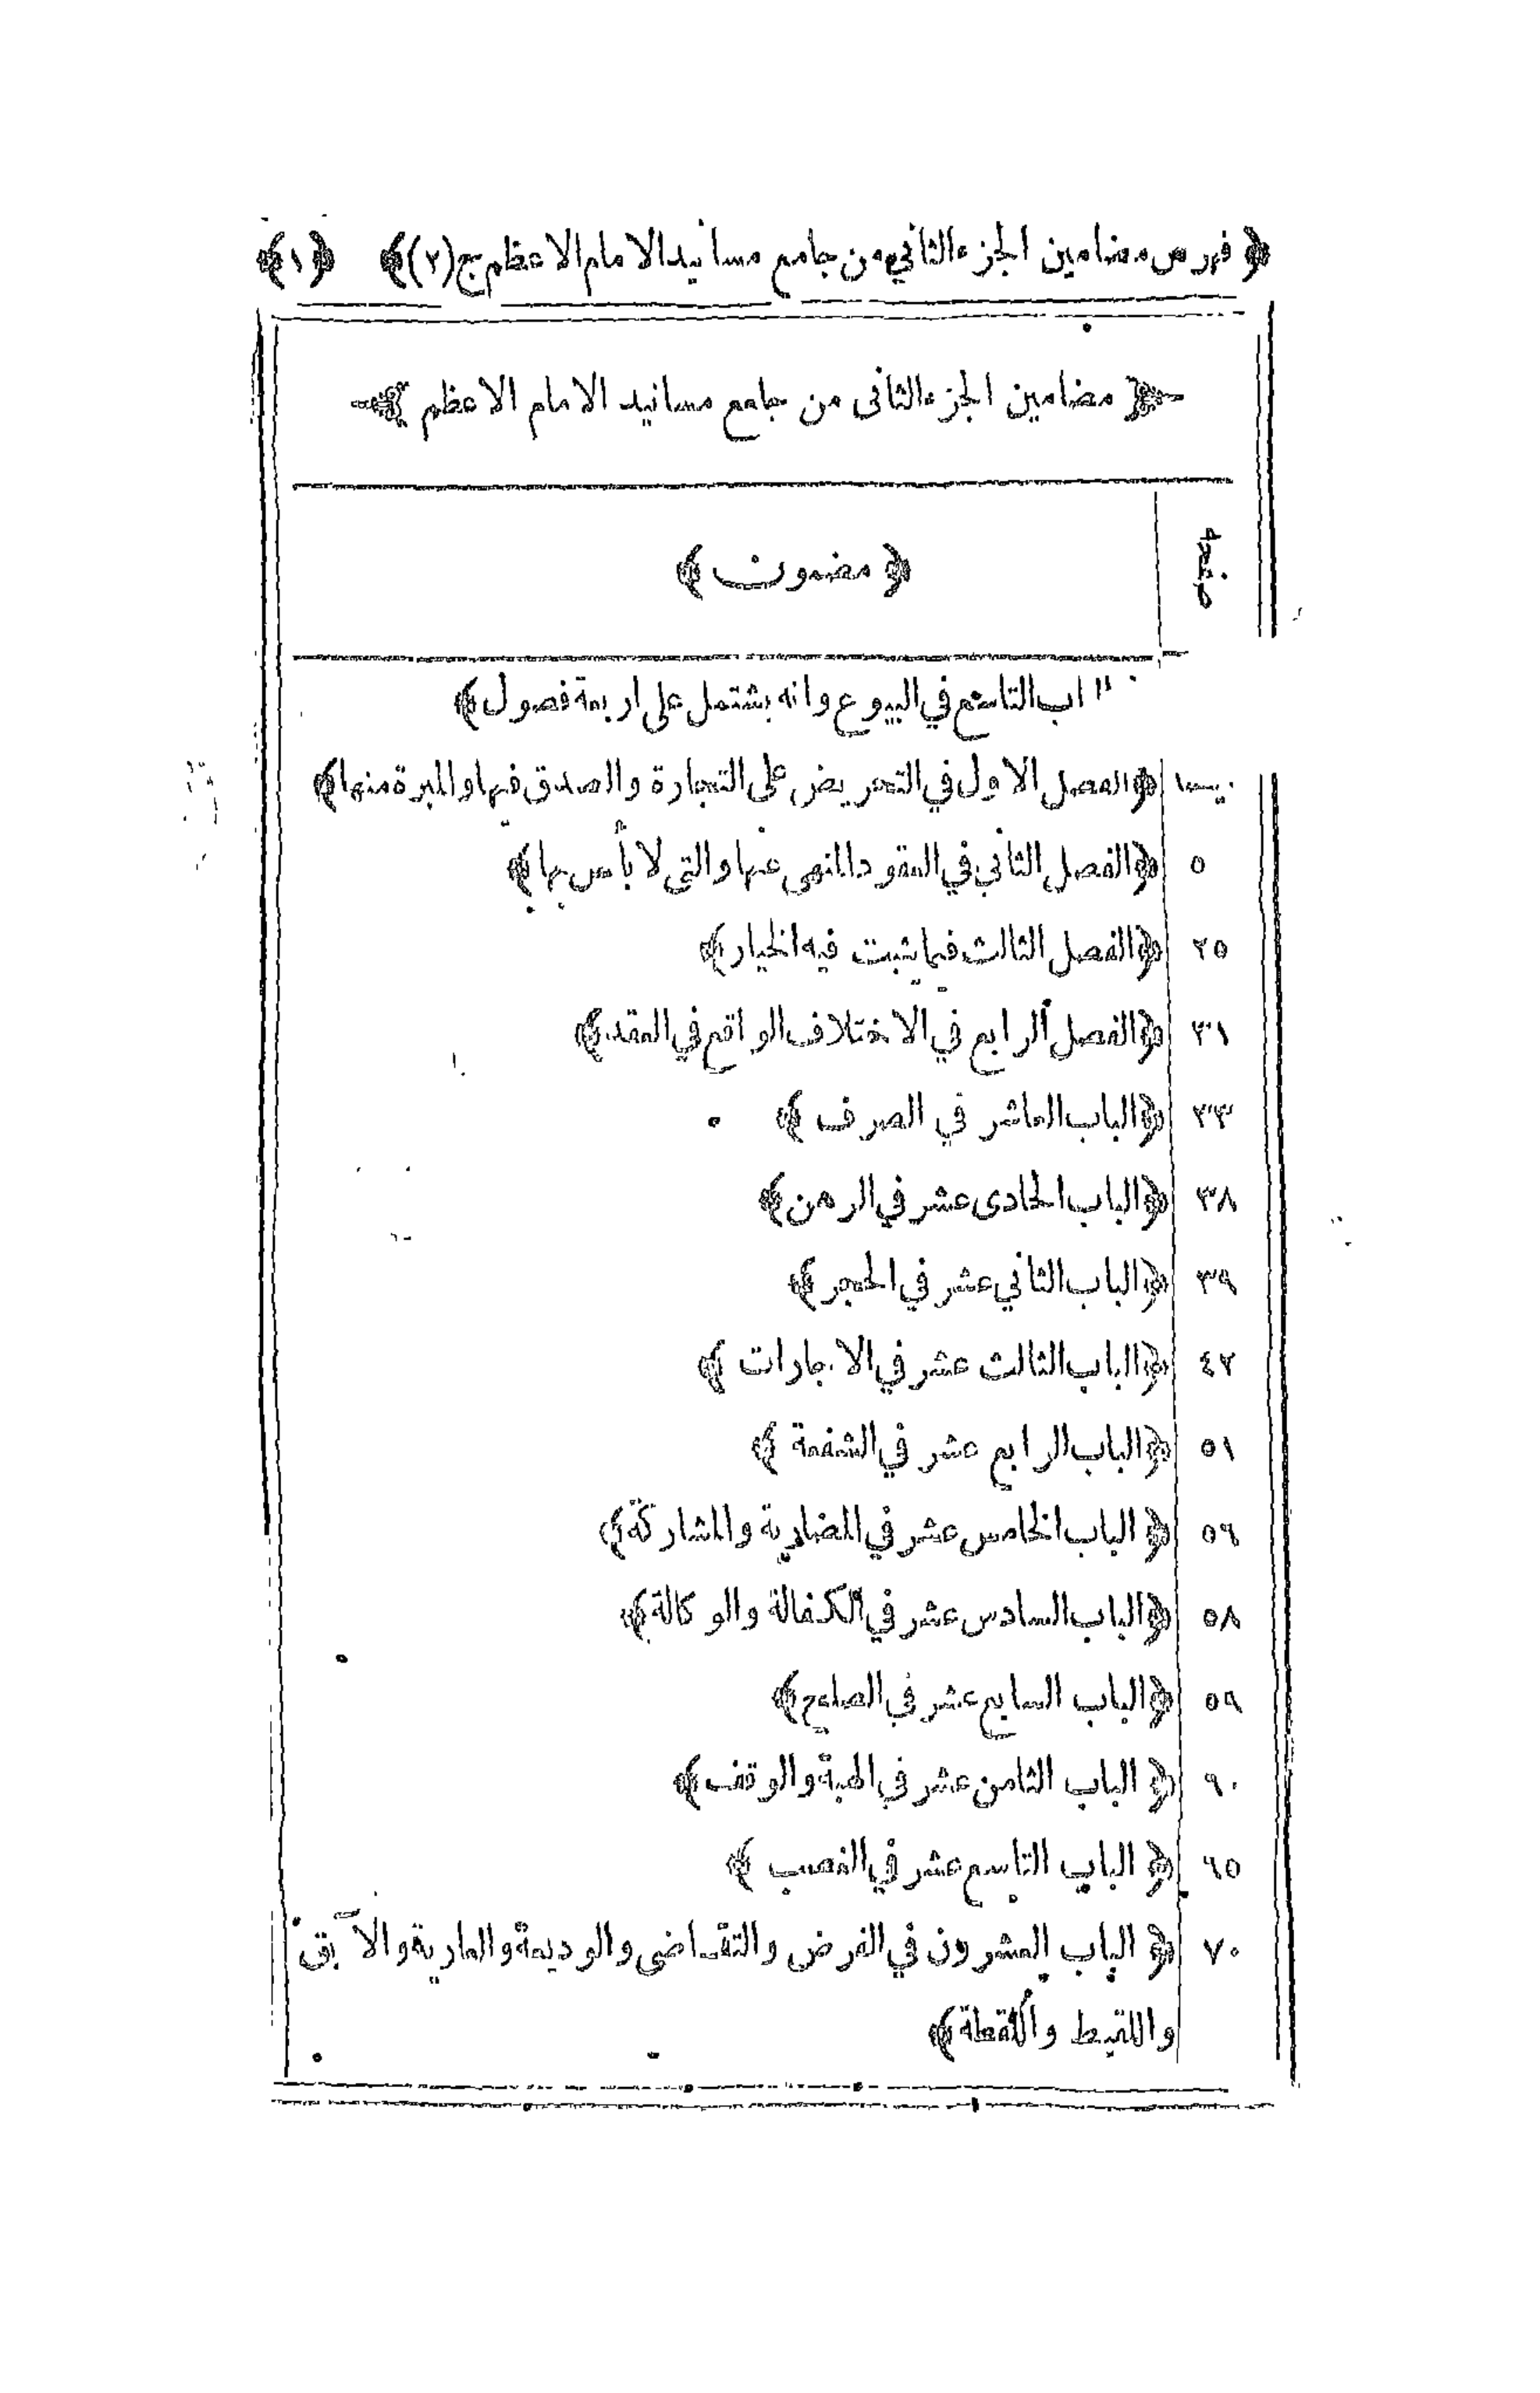 ﴿ فهرس مضامين الجزء الثاني من جامع مسانيد الامام الاعظم ج (٢) ﴾ ﴿ ١ ﴾
﴿ مضامين الجزء الثانى من جامع مسانيد الامام الاعظم ﴾
صفحه ﴿ مضمون ﴾
التاسع في البيوع وانه يشتمل على اربعة فصول ﴾
﴿ الفصل الاول في التحريض على التجارة والصدق فيها والمبرة منها ﴾
٥ ﴿ الفصل الثاني في العقود المنهى عنها والتى لا بأس بها ﴾
٢٥ ﴿ الفصل الثالث فيما يثبت فيه الخيار ﴾
٣١ ﴿ الفصل الرابع في الاختلاف الواقع في العقد ﴾
٣٣ ﴿ الباب العاشر في الصرف ﴾
٣٨ ﴿ الباب الحادى عشر في الرهن ﴾
٣٩ ﴿ الباب الثاني عشر في الحجر ﴾
٤٢ ﴿ الباب الثالث عشر في الاجارات ﴾
٥١ ﴿ الباب الرابع عشر في الشفعة ﴾
٥٦ ﴿ الباب الخامس عشر في المضاربة والمشاركة ﴾
٥٨ ﴿ الباب السادس عشر في الكفالة والوكالة ﴾
٥٩ ﴿ الباب السابع عشر في الصلح ﴾
٦٠ ﴿ الباب الثامن عشر في الهبة والوقف ﴾
٦٥ ﴿ الباب التاسع عشر في الغصب ﴾
٧٠ ﴿ الباب العشرون في القرض والتقاضى والوديعة والعارية والآبق
واللقيط واللقطة ﴾